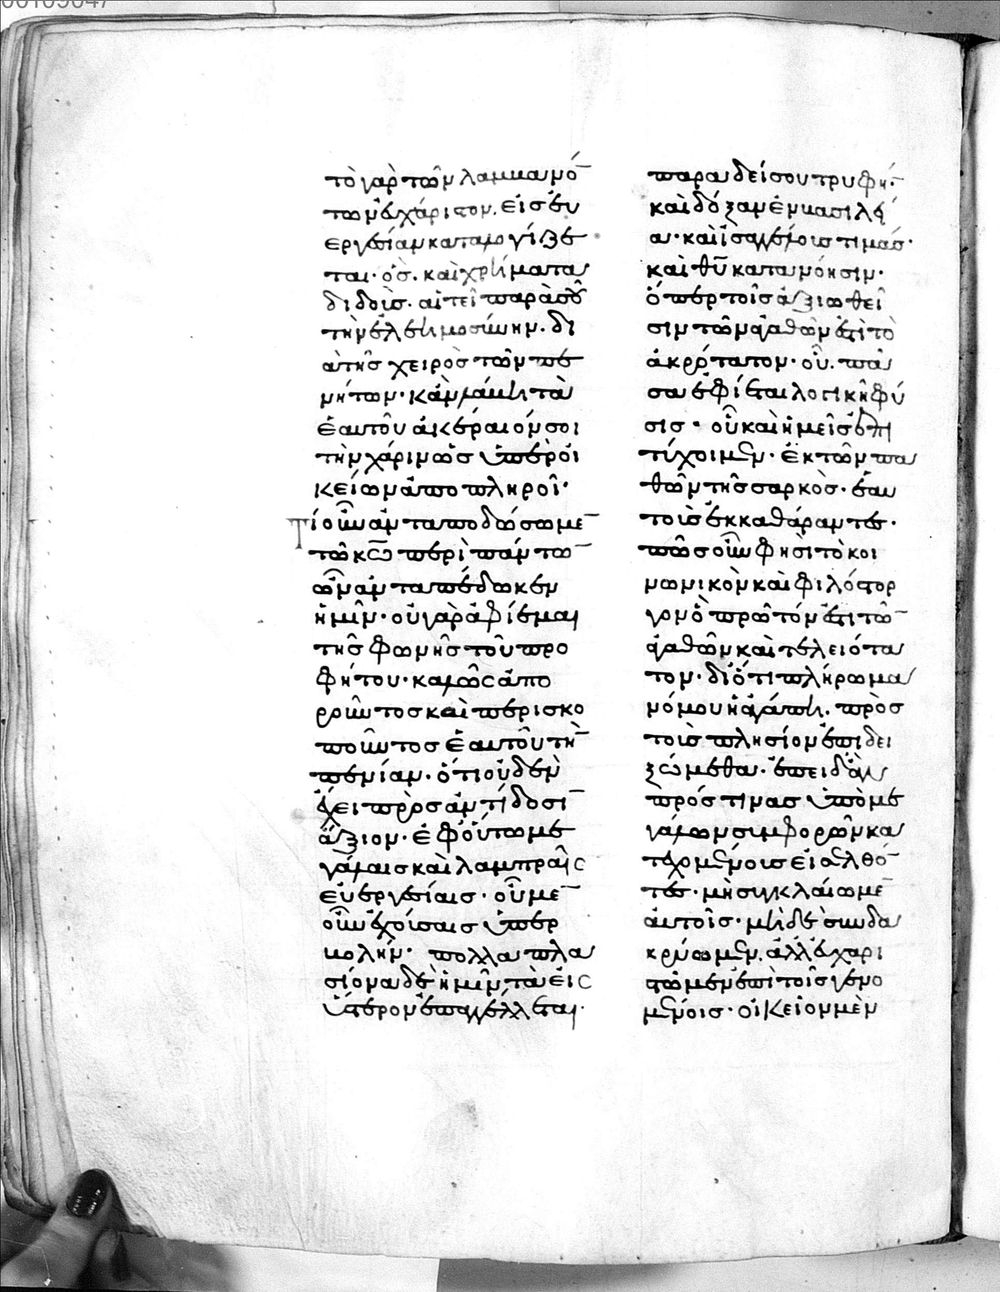 τὸ γὰρ τῶν λαμβανό
των εὐχάριστον, εἰς εὐ
εργεσίαν καταλογίζε
ται· ὁ σ̅ς̅. καὶ χρήματα
διδοὶς· αἰτεῖ παρὰ σοῦ
τὴν ἐλεημοσύνην· δι
ὰ τῆς χειρὸς τῶν πε
νήτων· κἂν λάβη τὰ
ἑαυτοῦ ἀκέραιόν σοι
τὴν χάριν ὡς ὑπὲρ οἰ
κείων ἀποπληροῖ·
Τί οὖν ἀνταποδώσωμε̅
τῷ κ̅ω̅ περὶ πάντω̅
ὧν ἀνταπέδωκεν
ἡμῖν· οὐ γὰρ ἀφίεμαι
τῆς φωνῆς τοῦ προ
φήτου· καλῶς ἀπο
ροῦντος καὶ περισκο
ποῦντος ἑαυτοῦ τὴ̅
πενίαν· ὅτι οὐδὲν
ἔχει πρὸς ἀντίδοσι̅
ἄξιον· ἐφ᾽ οὕτω με
γάλαις καὶ λαμπραῖς
εὐεργεσίαις· οὗ με̅
οὖν ἐχοίσαις ὑπερ
βολήν· πολλαπλα
σίονα δὲ ἡμῖν τὰ εἰς
ὕστερον ἐπαγγέλλεται·
παραδείσου τρυφή̅·
καὶ δόξαν ἐν βασιλεί
α· καὶ ἰσαγγέλους τιμάς·
καὶ θ̅υ̅ κατανόησιν·
ὅπερ τοῖς ἀξιωθεῖ
σιν τῶν ἀγαθῶν ἐστὶ τὸ
ἀκρότατον· οὗ. πᾶ
σα ἐφίεται λογικὴ φύ
σις· οὗ καὶ ἡμεῖς ἐπι
τύχοιμεν· ἐκ τῶν πα
θῶν τῆς σαρκὸς· ἑαυ
τοὶς ἐκκαθάραντες·
πῶς οὖν φησὶ τὸ κοι
νωνικὸν καὶ φιλόστορ
γον ὃ πρῶτόν ἐστι τῶ̅
ἀγαθῶν καὶ τελειότα
τον· διότι πλήρωμα
νόμου ἡ ἀγάπη. πρὸς
τοὶς πλησίον ἐπιδει
ξώμεθα· ἐπειδὰν
πρός τινας ὑπὸ με
γάλων συμφορῶν κα
τεχομένοις εἰσελθό̅
τες· μὴ συγκλαίωμε̅
αὐτοῖς· μηδὲ συνδα
κρύωμεν, ἀλλ᾽ εὐχαρι
στῶμεν ἐπὶ τοῖς γενο
μένοις· οἰκεῖον μὲν